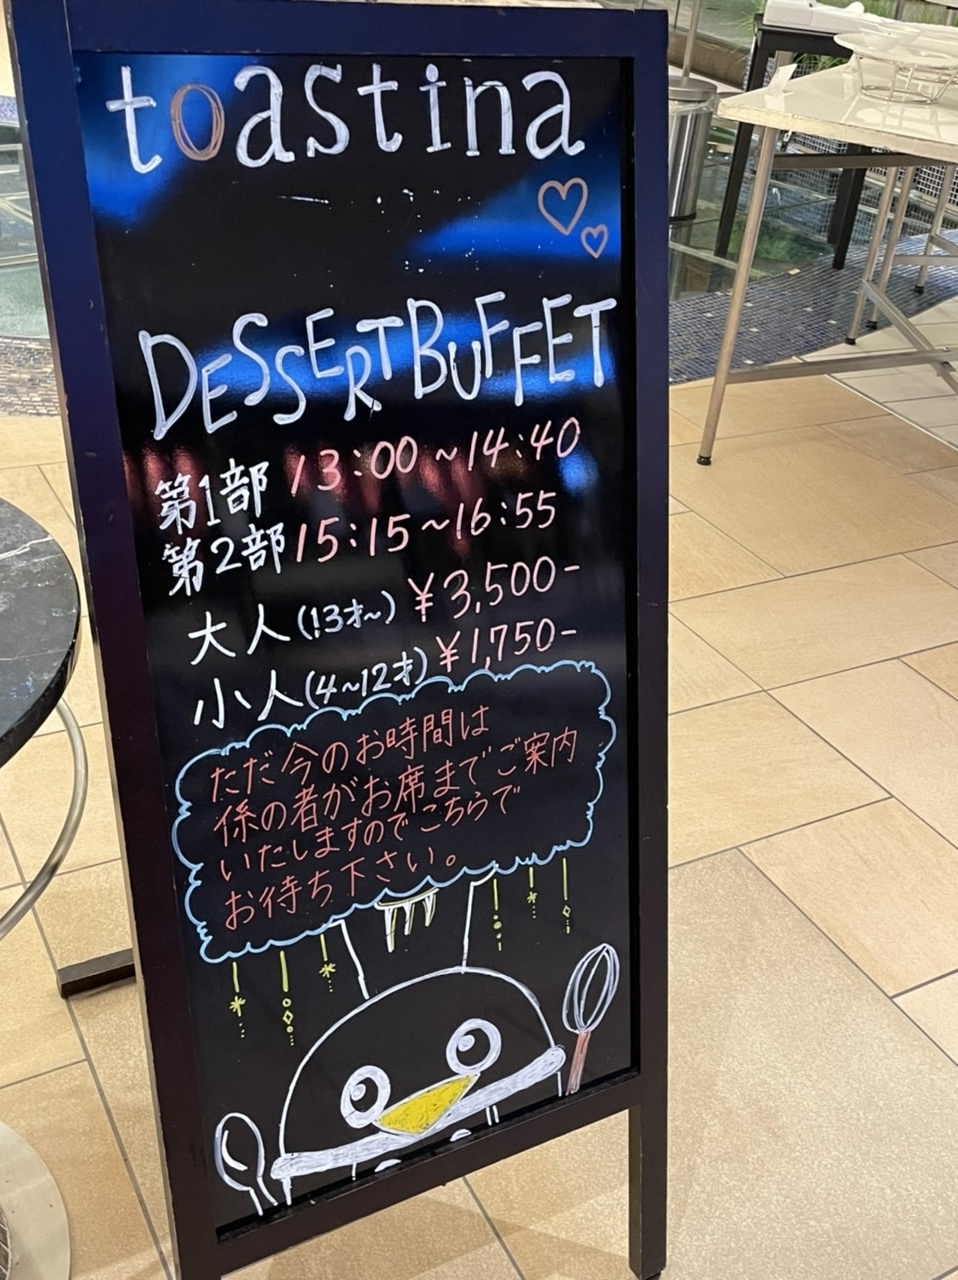 toastina
DESSERT BUFFET
第1部 13:00~14:40
第2部 15:15~16:55
大人(13才~) ¥3,500-
小人(4~12才) ¥1,750-
ただ今のお時間は
係の者がお席までご案内
いたしますのでこちらで
お待ち下さい。